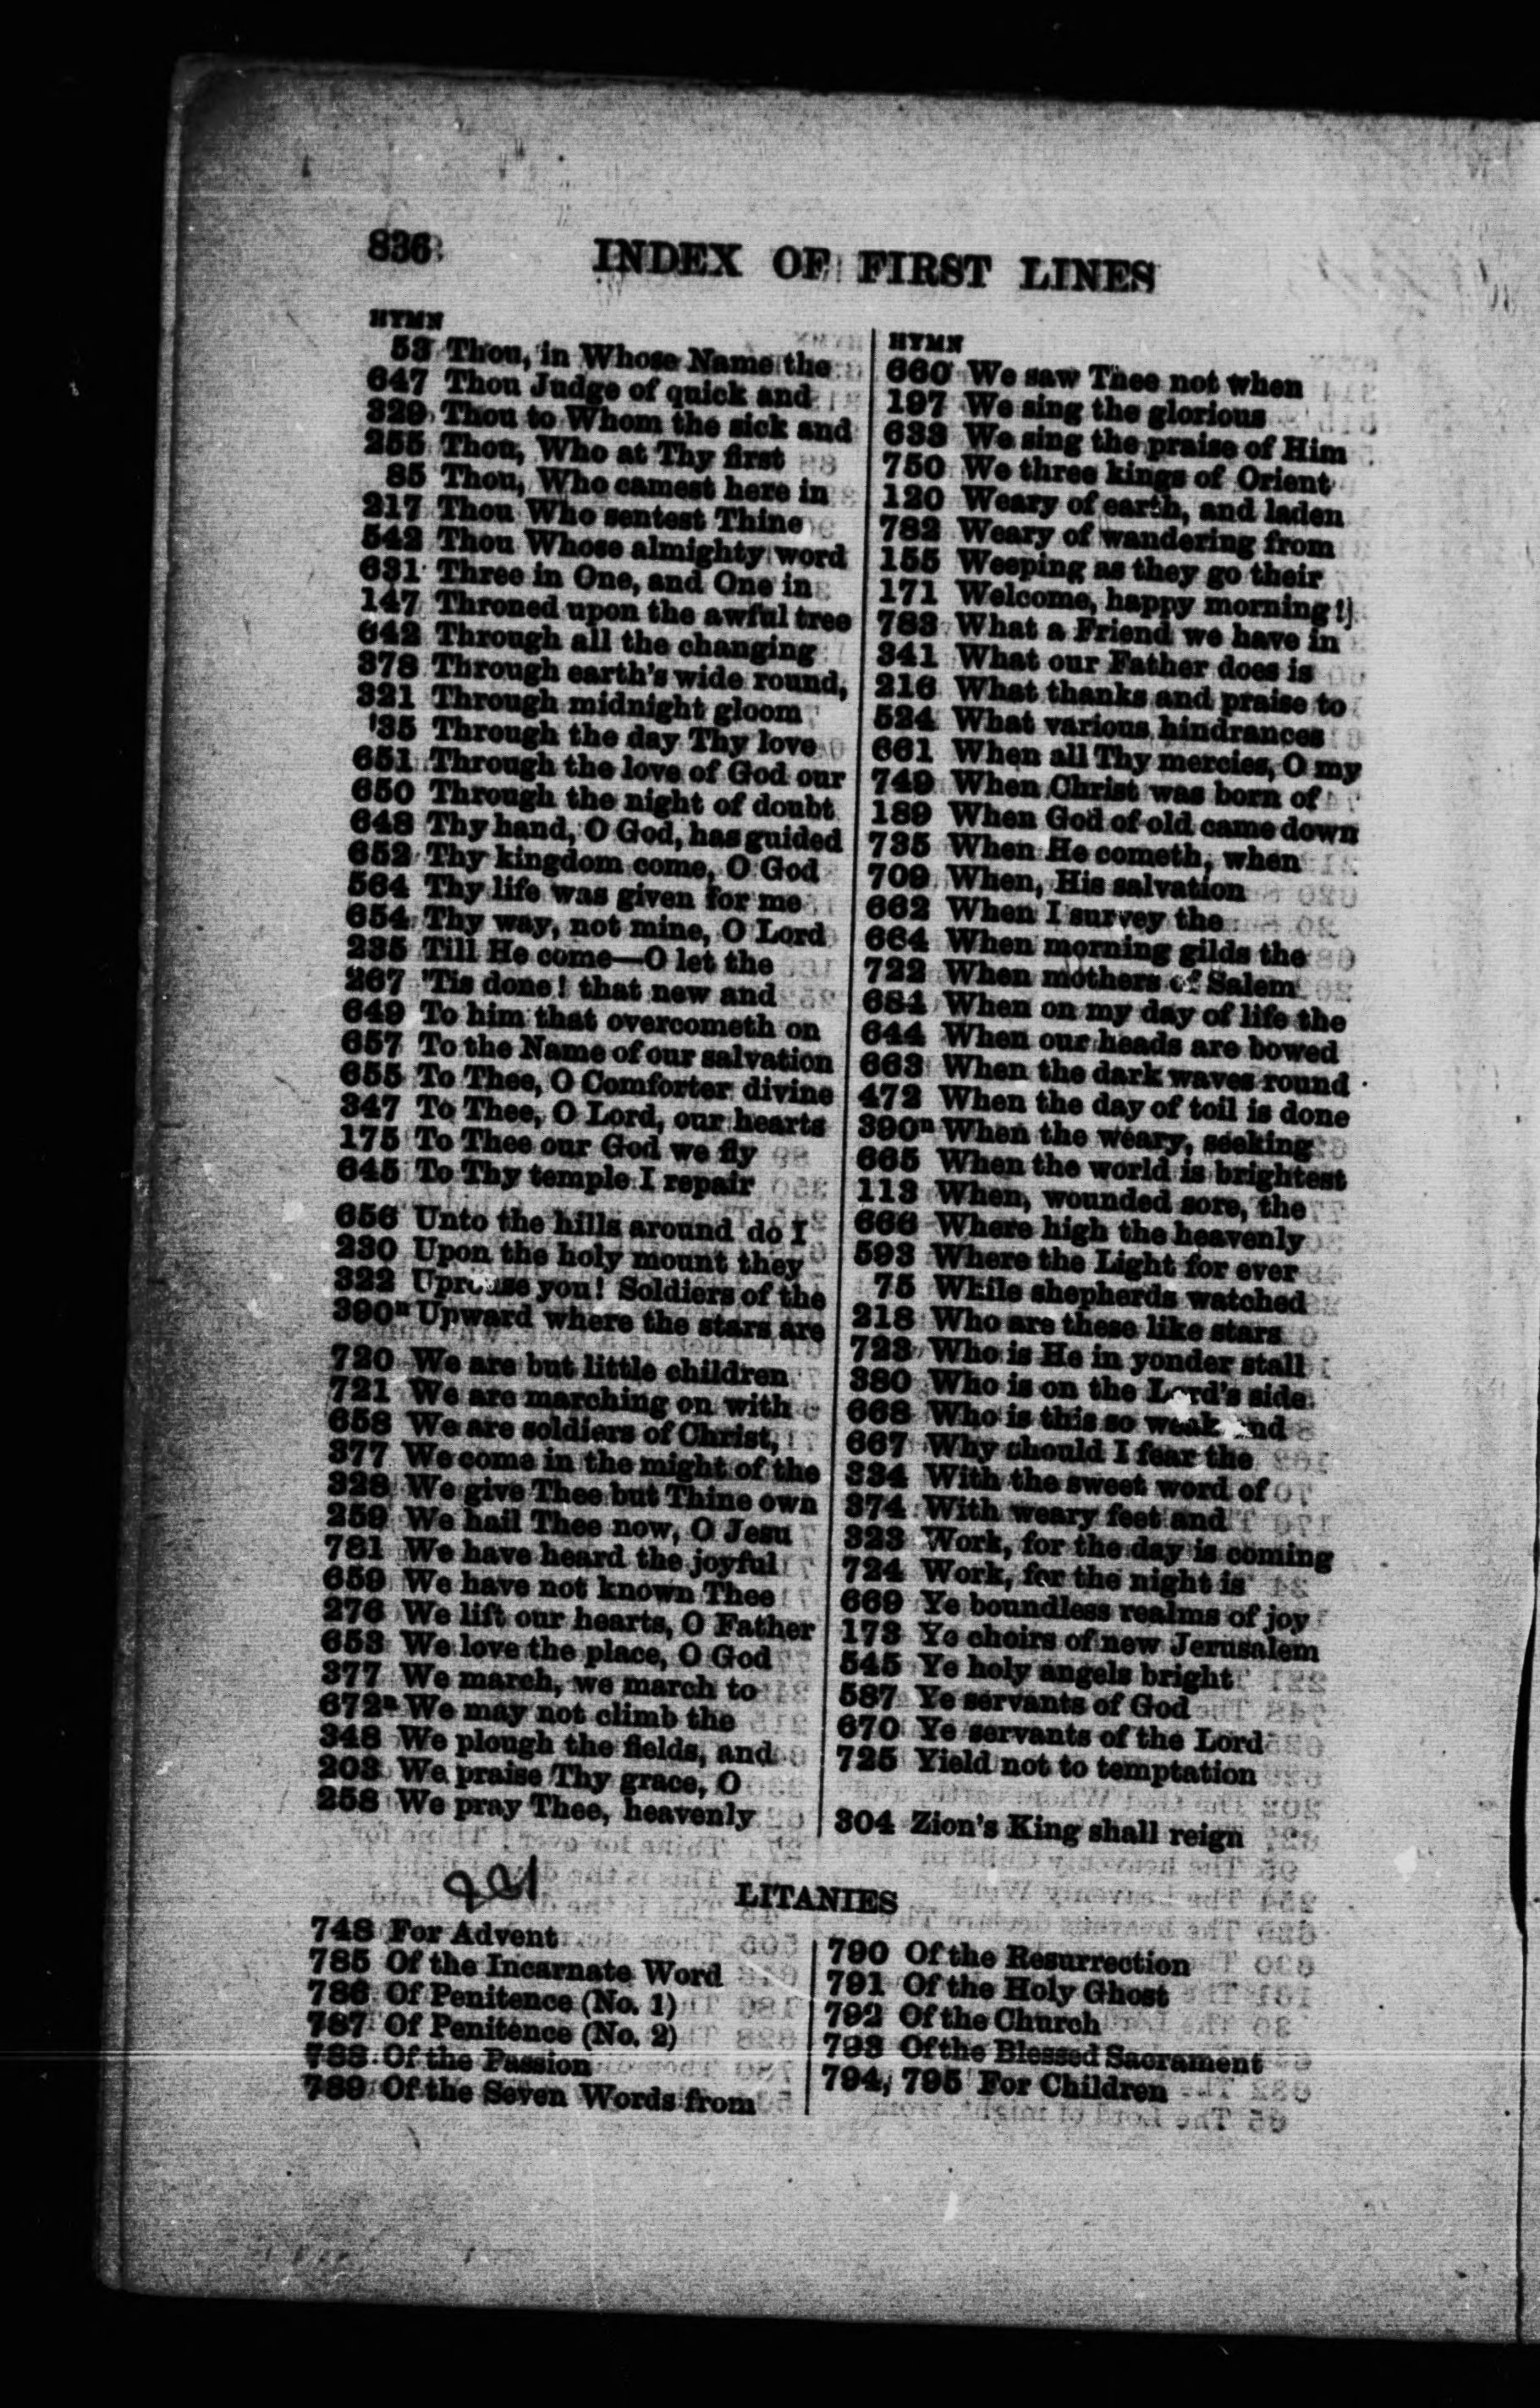 836 INDEX OF FIRST LINES
HYMN
53 Thou, in Whose Name the
647 Thou Judge of quick and
329 Thou to Whom the sick and
255 Thou, Who at Thy first
85 Thou, Who camest here in
217 Thou Who sentest Thine
542 Thou Whose almighty word
631 Three in One, and One in
147 Throned upon the awful tree
642 Through all the changing
378 Through earth's wide round,
321 Through midnight gloom
35 Through the day Thy love
651 Through the love of God our
650 Through the night of doubt
648 Thy hand, O God, has guided
652 Thy kingdom come, O God
564 Thy life was given for me
654 Thy way, not mine, O Lord
235 Till He come—O let the
267 'Tis done! that new and
649 To him that overcometh on
657 To the Name of our salvation
655 To Thee, O Comforter divine
347 To Thee, O Lord, our hearts
175 To Thee our God we fly
645 To Thy temple I repair
656 Unto the hills around do I
230 Upon the holy mount they
322 Uprouse you! Soldiers of the
390n Upward where the stars are
720 We are but little children
721 We are marching on with
658 We are soldiers of Christ,
377 We come in the might of the
328 We give Thee but Thine own
259 We hail Thee now, O Jesu
781 We have heard the joyful
659 We have not known Thee
276 We lift our hearts, O Father
653 We love the place, O God
377 We march, we march to
672n We may not climb the
348 We plough the fields, and
203 We praise Thy grace, O
258 We pray Thee, heavenly
HYMN
660 We saw Thee not when
197 We sing the glorious
633 We sing the praise of Him
750 We three kings of Orient
120 Weary of earth, and laden
782 Weary of wandering from
155 Weeping as they go their
171 Welcome, happy morning!
783 What a Friend we have in
341 What our Father does is
216 What thanks and praise to
524 What various hindrances
661 When all Thy mercies, O my
749 When Christ was born of
189 When God of old came down
735 When He cometh, when
709 When, His salvation
662 When I survey the
664 When morning gilds the
722 When mothers of Salem
684 When on my day of life the
644 When our heads are bowed
663 When the dark waves round
472 When the day of toil is done
390n When the weary, seeking
665 When the world is brightest
113 When, wounded sore, the
666 Where high the heavenly
593 Where the Light for ever
75 While shepherds watched
218 Who are these like stars
723 Who is He in yonder stall
380 Who is on the Lord's side
668 Who is this so weak and
667 Why should I fear the
334 With the sweet word of
374 With weary feet and
323 Work, for the day is coming
724 Work, for the night is
669 Ye boundless realms of joy
173 Ye choirs of new Jerusalem
545 Ye holy angels bright
587 Ye servants of God
670 Ye servants of the Lord
725 Yield not to temptation
304 Zion's King shall reign
LITANIES
748 For Advent
785 Of the Incarnate Word
786 Of Penitence (No. 1)
787 Of Penitence (No. 2)
788 Of the Passion
789 Of the Seven Words from
790 Of the Resurrection
791 Of the Holy Ghost
792 Of the Church
793 Of the Blessed Sacrament
794, 795 For Children